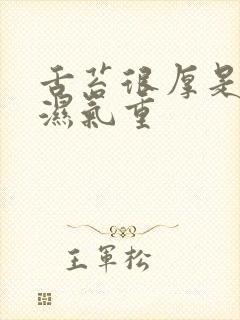 舌苔很厚是
濕氣重
王軍松